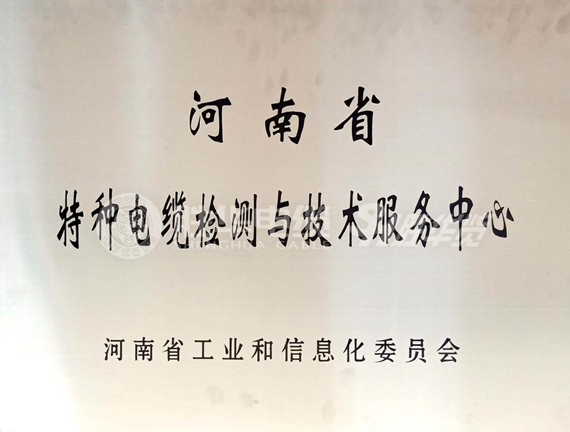 河南省
特种电缆检测与技术服务中心
河南省工业和信息化委员会